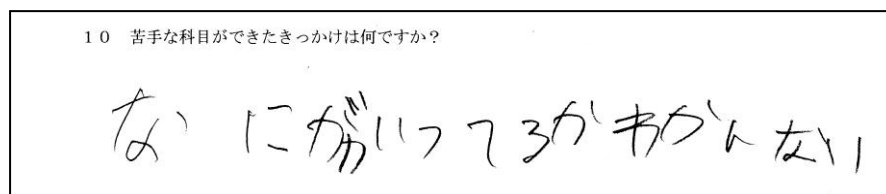 10 苦手な科目ができたきっかけは何ですか？
なにがいってるかわかんない